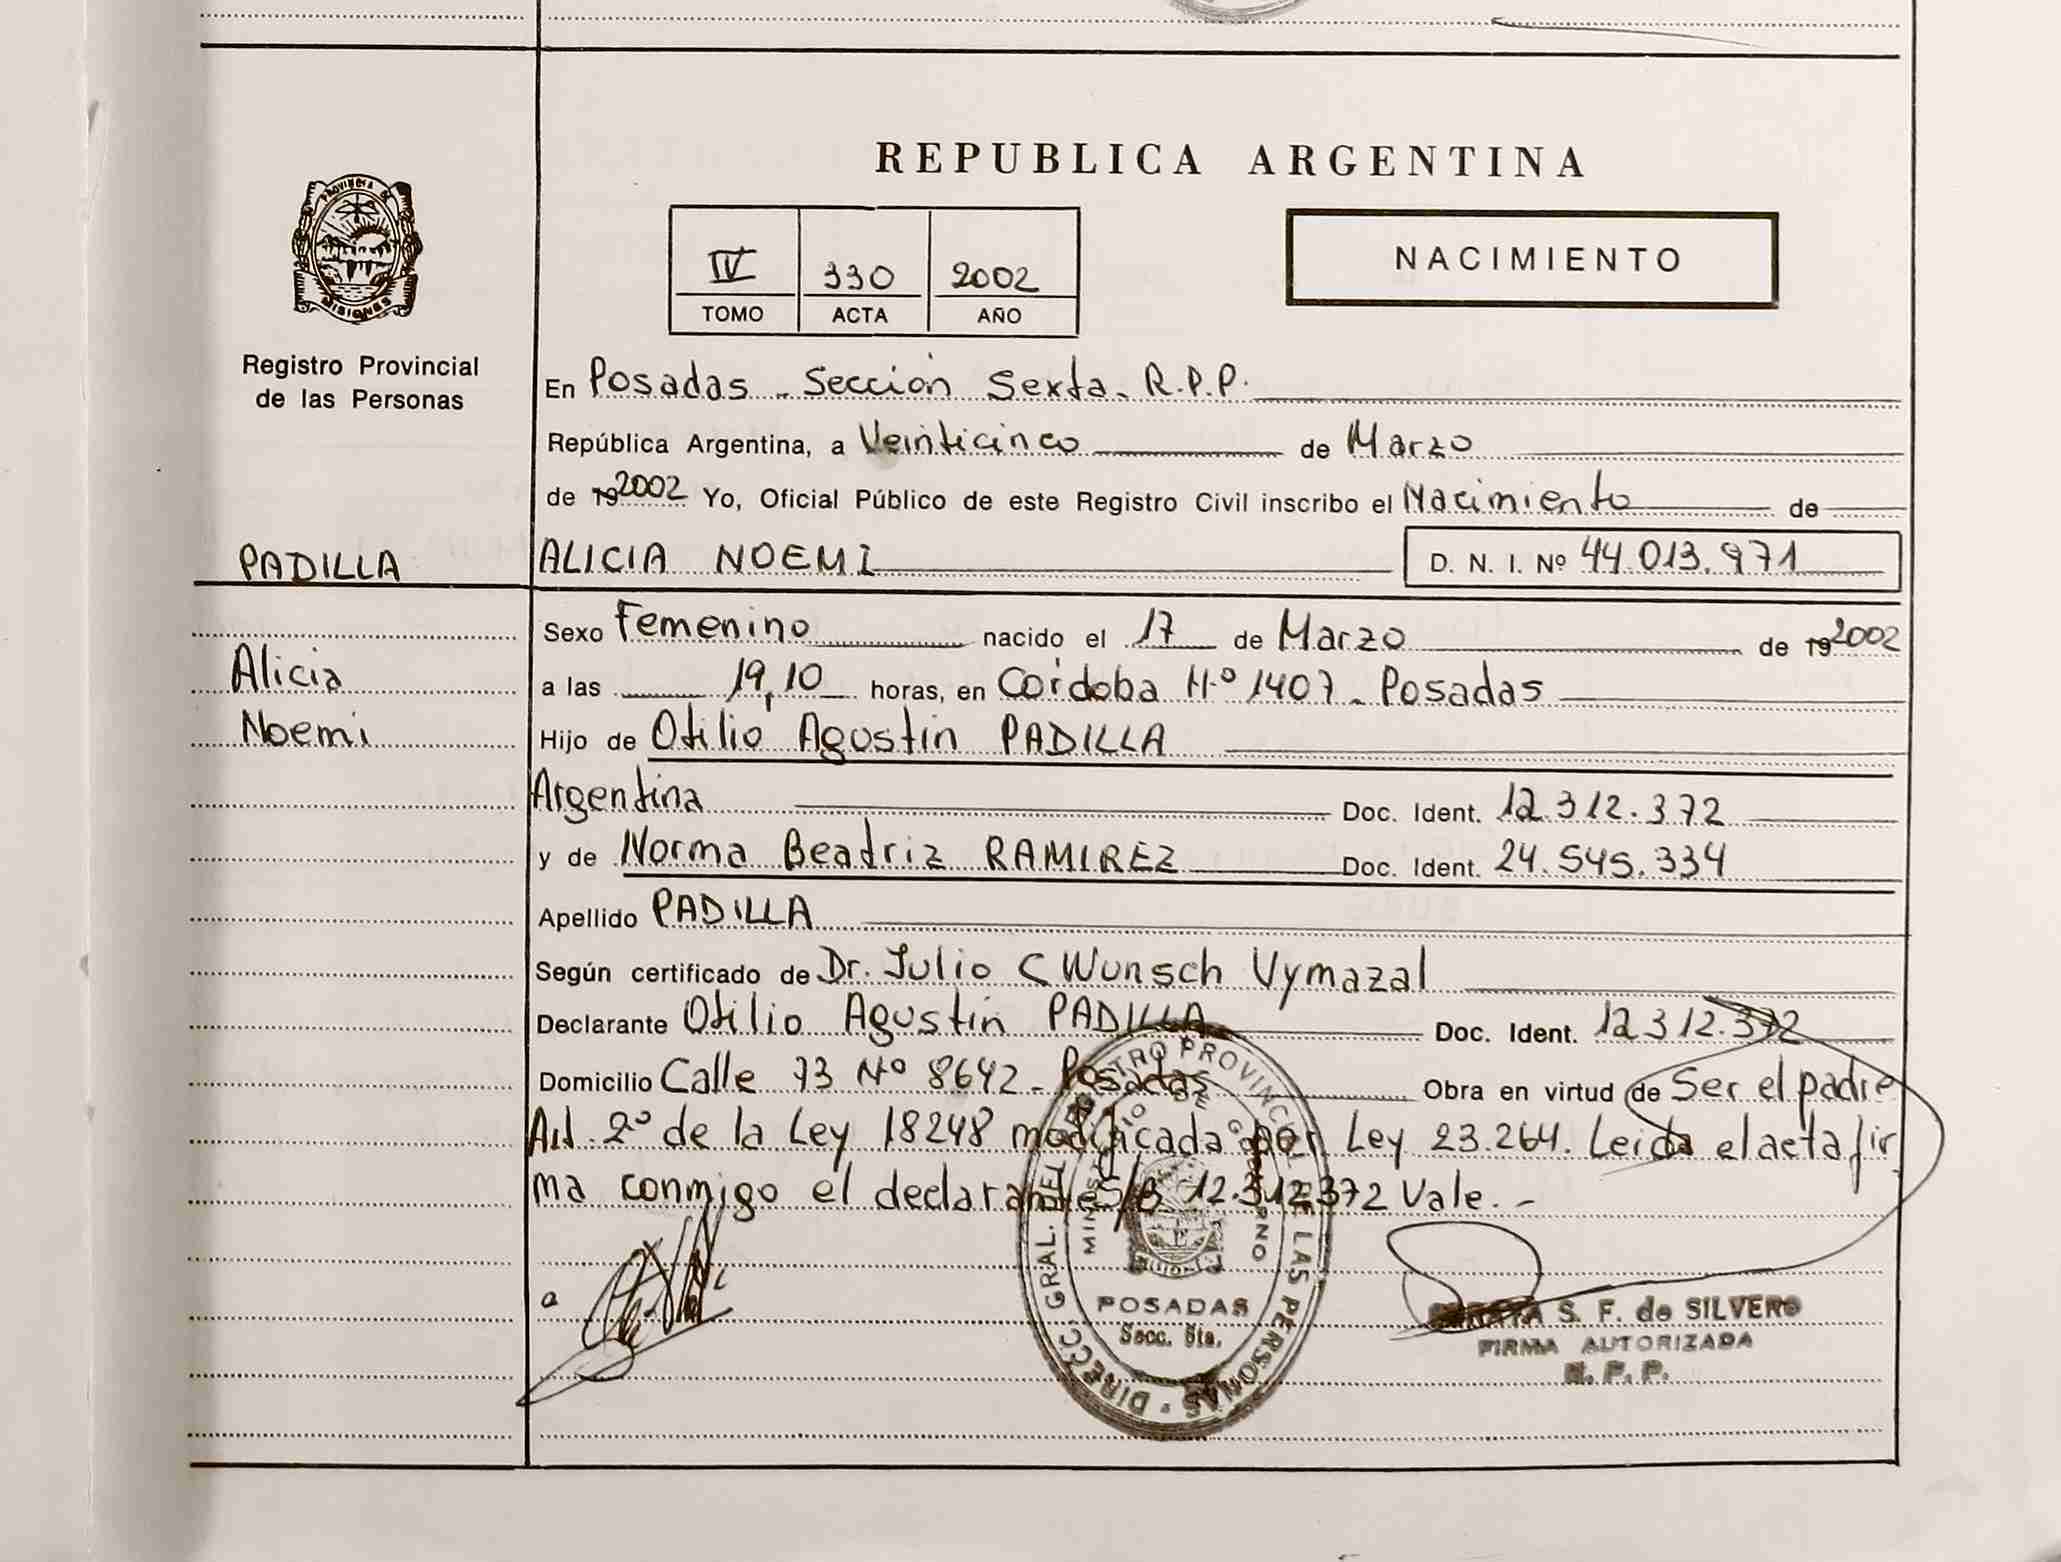 REPUBLICA ARGENTINA
Provincia de
Misiones
Registro Provincial
de las Personas
IV 330 2002
TOMO ACTA AÑO
NACIMIENTO
En Posadas - Sección Sexta - R.P.P.
República Argentina, a Veinticinco de Marzo
de 19 2002 Yo, Oficial Público de este Registro Civil inscribo el Nacimiento de
PADILLA ALICIA NOEMI D. N. I. Nº 44.013.971
Sexo Femenino nacido el 17 de Marzo de 19 2002
Alicia a las 19,10 horas, en Córdoba Nº 1407 - Posadas
Noemi Hijo de Otilio Agustín PADILLA
Argentina Doc. Ident. 12.312.372
y de Norma Beatriz RAMIREZ Doc. Ident. 24.545.334
Apellido PADILLA
Según certificado de Dr. Julio C Wunsch Vymazal
Declarante Otilio Agustín PADILLA Doc. Ident. 12312.372
Domicilio Calle 73 Nº 8642 - Posadas Obra en virtud de Ser el padre
Art. 2º de la Ley 18248 modificada por Ley 23.264. Leida el acta fir
ma conmigo el declarante S/B 12.312372 Vale. -
DIRECC. GRAL. DEL REGISTRO PROVINCIAL DE LAS PERSONAS
MINISTERIO DE GOBIERNO
POSADAS
Secc. 6ta.
S. F. de SILVERO
FIRMA AUTORIZADA
R. P. P.